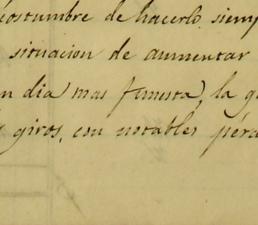 costumbre de hacerlo siemp
situacion de aumentar
n dia mas funesta, la q
giros, con notables pérd